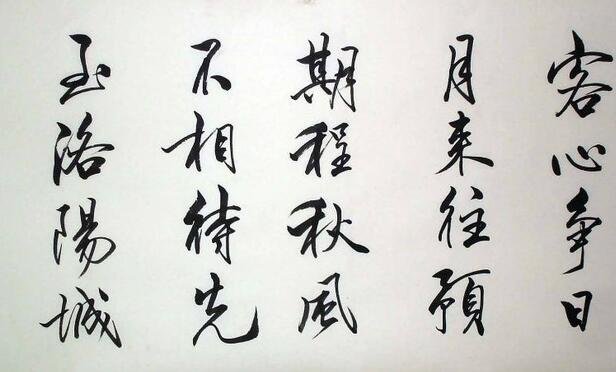 客心争日
月来往預
期程秋風
不相待先
至洛陽城